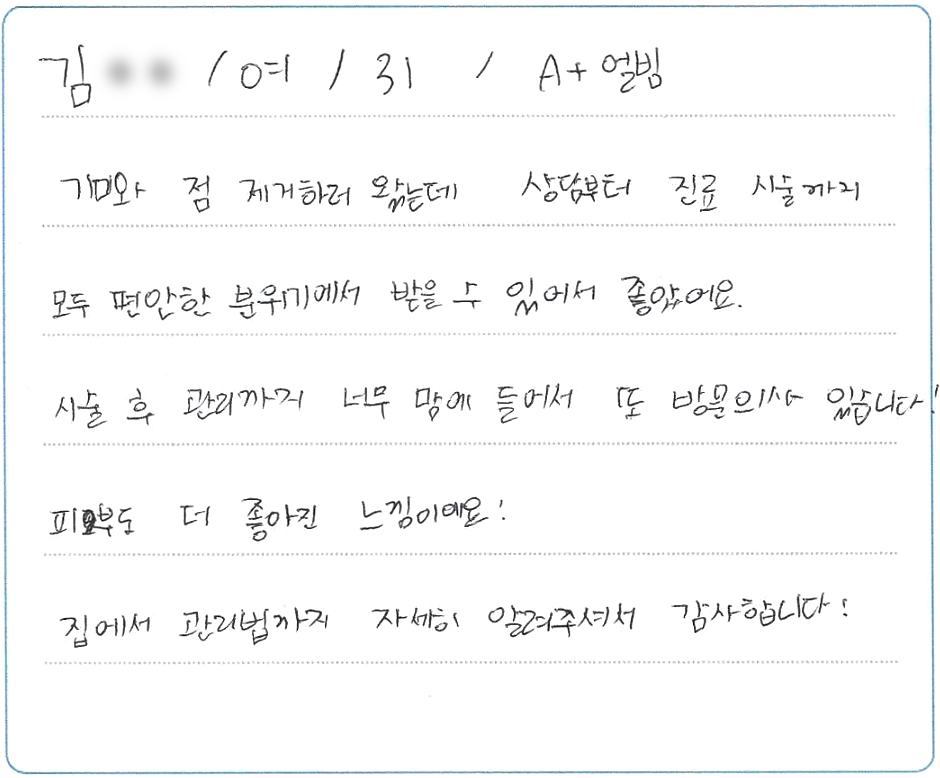 김 / 여 / 31 / A+ 얼빔
기미와 점 제거하러 왔는데 상담부터 진료 시술까지
모두 편안한 분위기에서 받을 수 있어서 좋았어요.
시술 후 관리까지 너무 맘에 들어서 또 방문의사 있습니다!
피부도 더 좋아진 느낌이에요!
집에서 관리법까지 자세히 알려주셔서 감사합니다!